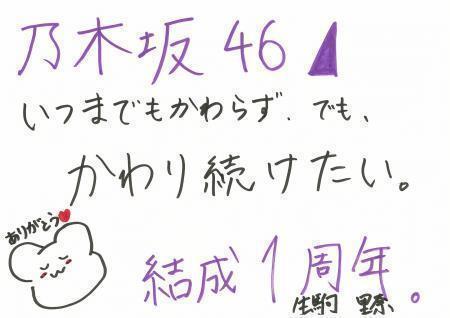 乃木坂46
いつまでもかわらず、でも、
かわり続けたい。
ありがとう
結成1周年。
生駒 里奈